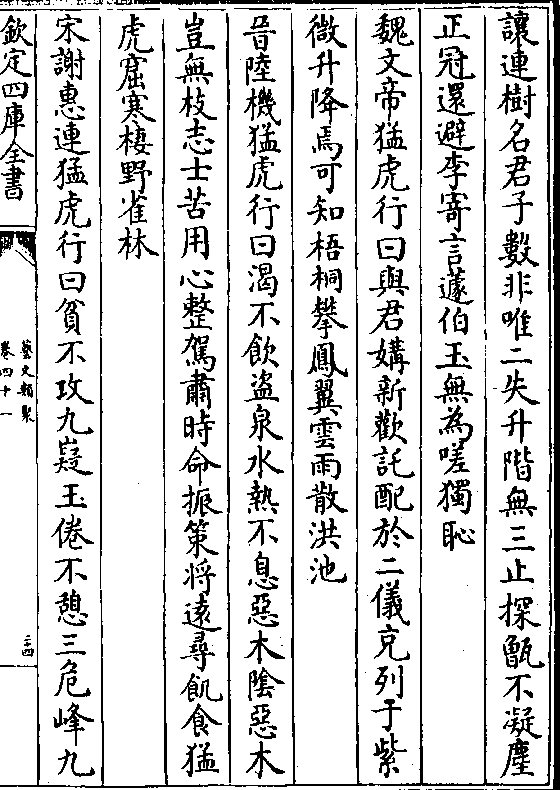 讓連樹名君子數非唯二失升階無三止探甑不凝塵
正冠還避李寄言蘧伯玉無為嗟獨恥
魏文帝猛虎行曰與君媾新歡託配於二儀充列于紫
微升降焉可知梧桐攀鳳翼雲雨散洪池
晉陸機猛虎行曰渴不飲盜泉水熱不息惡木陰惡木
豈無枝志士苦用心整駕肅時命振策將遠尋飢食猛
虎窟寒棲野雀林
宋謝惠連猛虎行曰貧不攻九嶷玉倦不憩三危峰九
欽定四庫全書
藝文類聚
卷四十一
二四